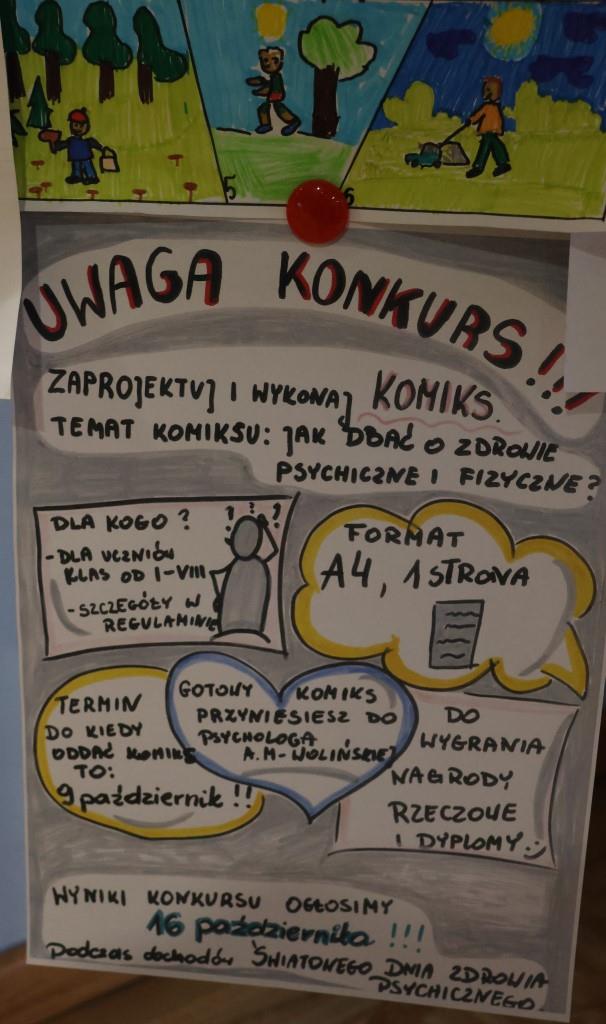 5
6
UWAGA KONKURS!!!
ZAPROJEKTUJ I WYKONAJ KOMIKS.
TEMAT KOMIKSU: JAK DBAĆ O ZDROWIE
PSYCHICZNE I FIZYCZNE?
DLA KOGO?
- DLA UCZNIÓW
KLAS OD I-VIII
- SZCZEGÓŁY W
REGULAMINIE
? ? ? ?
FORMAT
A4, 1 STRONA
TERMIN
DO KIEDY
ODDAĆ KOMIKS
TO:
9 październik!!
GOTOWY KOMIKS
PRZYNIESIESZ DO
PSYCHOLOGA
A.M-WOLIŃSKIEJ
DO
WYGRANIA
NAGRODY
RZECZOWE
I DYPLOMY :)
WYNIKI KONKURSU OGŁOSIMY
16 października !!!
Podczas obchodów ŚWIATOWEGO DNIA ZDROWIA
PSYCHICZNEGO.